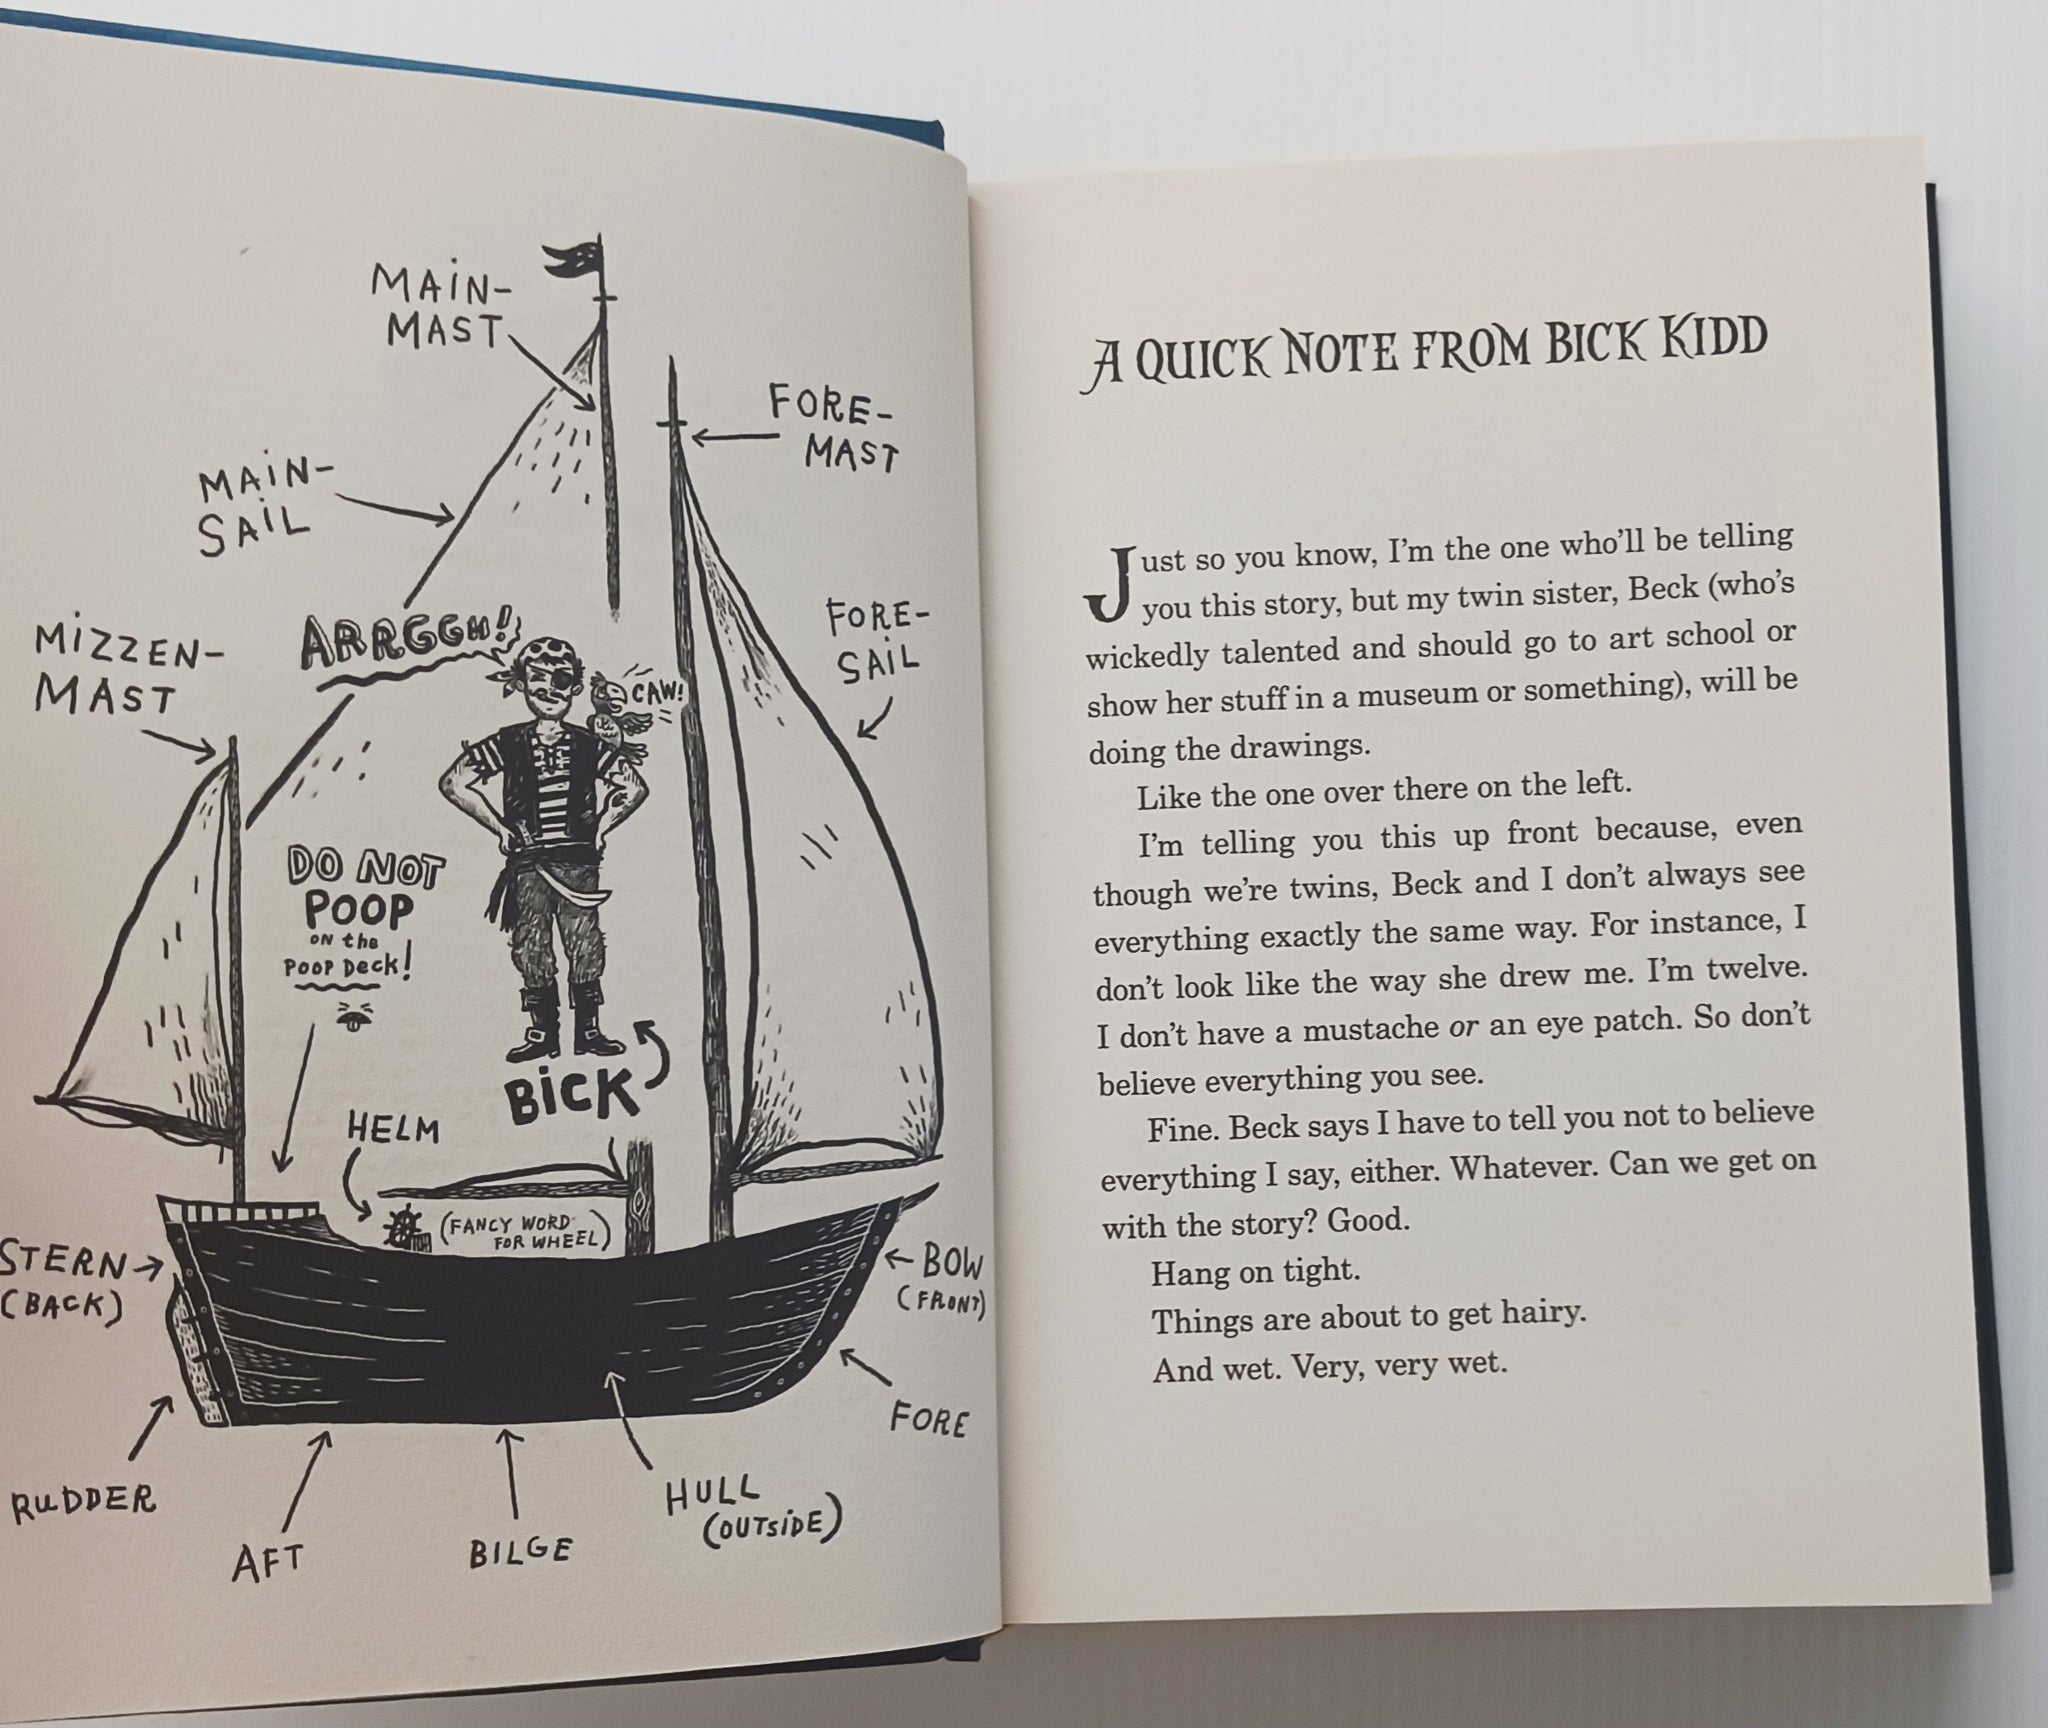 MAIN-
MAST
FORE-
MAST
MAIN-
SAIL
FORE-
SAIL
MIZZEN-
MAST
ARRGGH!
CAW!
DO NOT
POOP
ON the
POOP Deck!
BICK
HELM
(FANCY WORD
FOR WHEEL)
STERN
(BACK)
BOW
(FRONT)
FORE
RUDDER
AFT
BILGE
HULL
(OUTSIDE)
A QUICK NOTE FROM BICK KIDD
Just so you know, I'm the one who'll be telling
you this story, but my twin sister, Beck (who's
wickedly talented and should go to art school or
show her stuff in a museum or something), will be
doing the drawings.
Like the one over there on the left.
I'm telling you this up front because, even
though we're twins, Beck and I don't always see
everything exactly the same way. For instance, I
don't look like the way she drew me. I'm twelve.
I don't have a mustache or an eye patch. So don't
believe everything you see.
Fine. Beck says I have to tell you not to believe
everything I say, either. Whatever. Can we get on
with the story? Good.
Hang on tight.
Things are about to get hairy.
And wet. Very, very wet.